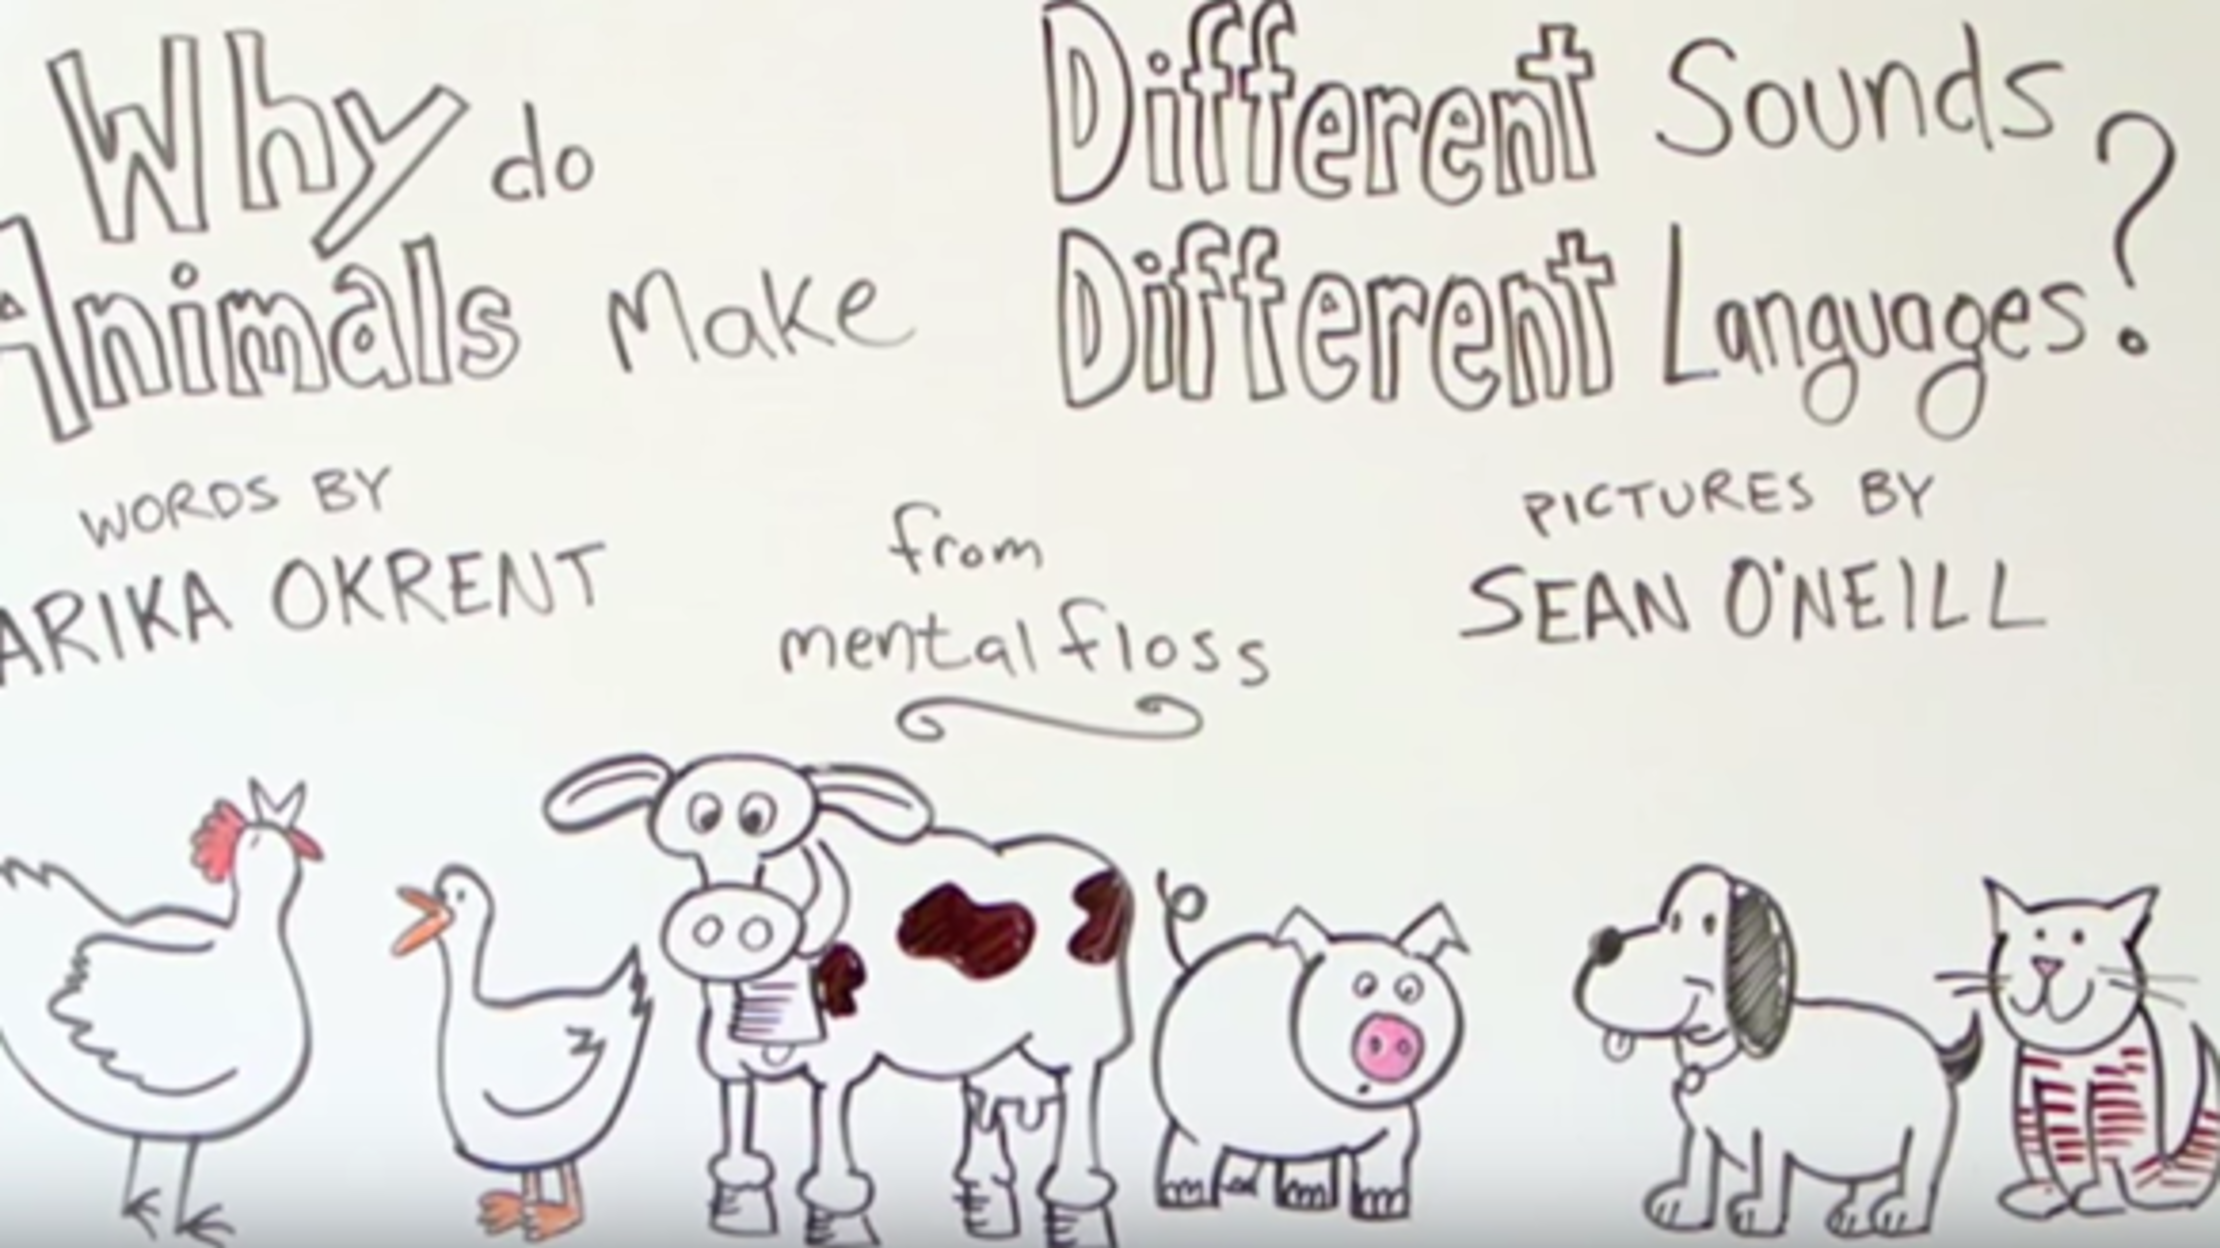 Why do
Animals Make
Different Sounds
Different Languages?
WORDS BY
ARIKA OKRENT
from
mental floss
PICTURES BY
SEAN O'NEILL